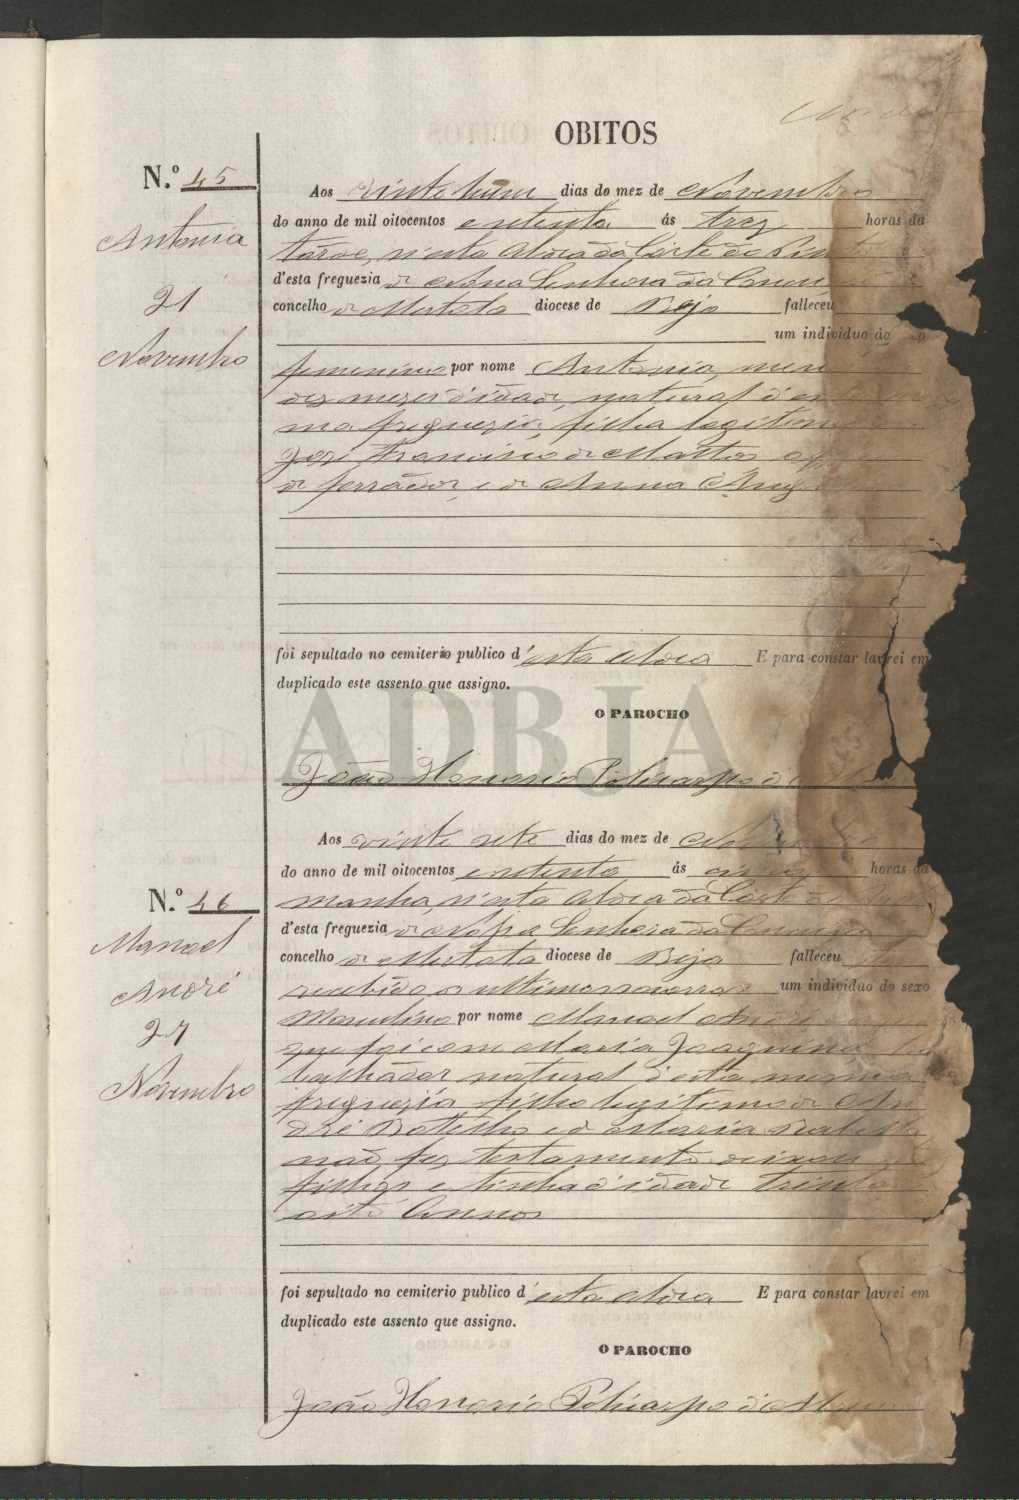 OBITOS
N.º 45
Antonia
21
Novembro
Aos vinte hum dias do mez de Novembro
do anno de mil oitocentos e setenta ás trez horas da
tarde, n'esta Aldea da Corte do Pinto
d'esta freguezia de Nossa Senhora da Conceição
concelho de Mertola diocese de Beja falleceu
um individuo do
femenino por nome Antonia, menor
dez mezes d'idade, natural d'esta
ma freguezia, filha legitima
José Francisco de Mattos
de ferrador, e de Anna
foi sepultado no cemiterio publico d'esta aldea. E para constar lavrei em
duplicado este assento que assigno.
O PAROCHO
João Honorio Policarpo d
ADBJA
N.º 46
Manoel
André
27
Novembro
Aos vinte sete dias do mez de
do anno de mil oitocentos e setenta ás horas da
manhã, n'esta Aldea da Corte do
d'esta freguezia de Nossa Senhora da Conceição
concelho de Mertola diocese de Beja falleceu
recebido os ultimos um individuo do sexo
Masculino por nome Manoel André
que foi com Maria Joaquina
balhador natural d'esta mesma
freguezia filho legitimo de An
dré Botelho e d Maria
não fez testamento deixou
filhos e tinha d'idade trinta
oito Annos
foi sepultado no cemiterio publico d'esta aldea E para constar lavrei em
duplicado este assento que assigno.
O PAROCHO
João Honorio Policarpo d